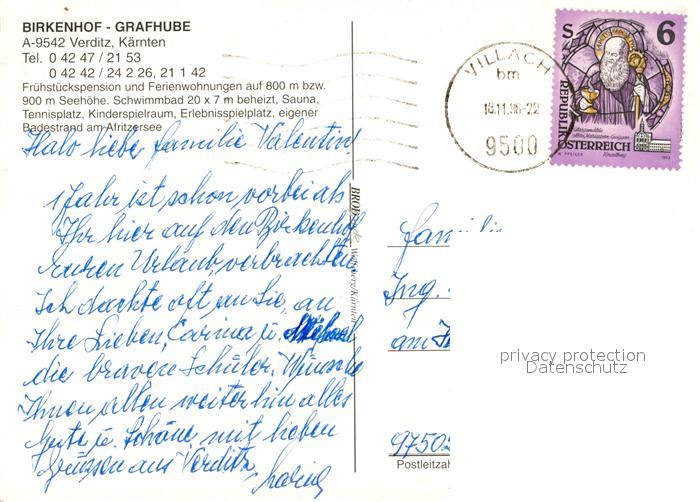 BIRKENHOF - GRAFHUBE
A-9542 Verditz, Kärnten
Tel. 0 42 47 / 21 53
0 42 42 / 24 2 26, 21 1 42
Frühstückspension und Ferienwohnungen auf 800 m bzw.
900 m Seehöhe. Schwimmbad 20 x 7 m beheizt, Sauna,
Tennisplatz, Kinderspielraum, Erlebnisspielplatz, eigener
Badestrand am Afritzersee
Halo liebe familie Valentin
1 Jahr ist schon vorbei als
Ihr hier auf den Birkenhof
euren Urlaub verbrachten
Ich dachte oft an Sie, an
Ihre Lieben, Carina u.
die braven Schüler, Wünsche
Ihnen allen weiterhin alles
Gute u. Schöne, mit lieben
Grüssen aus Verditz,
VILLACH
bm
18.11.96-22
9500
S 6
REPUBLIK
ÖSTERREICH
familie
Ing.
am
9750
Postleitzahl
privacy protection
Datenschutz